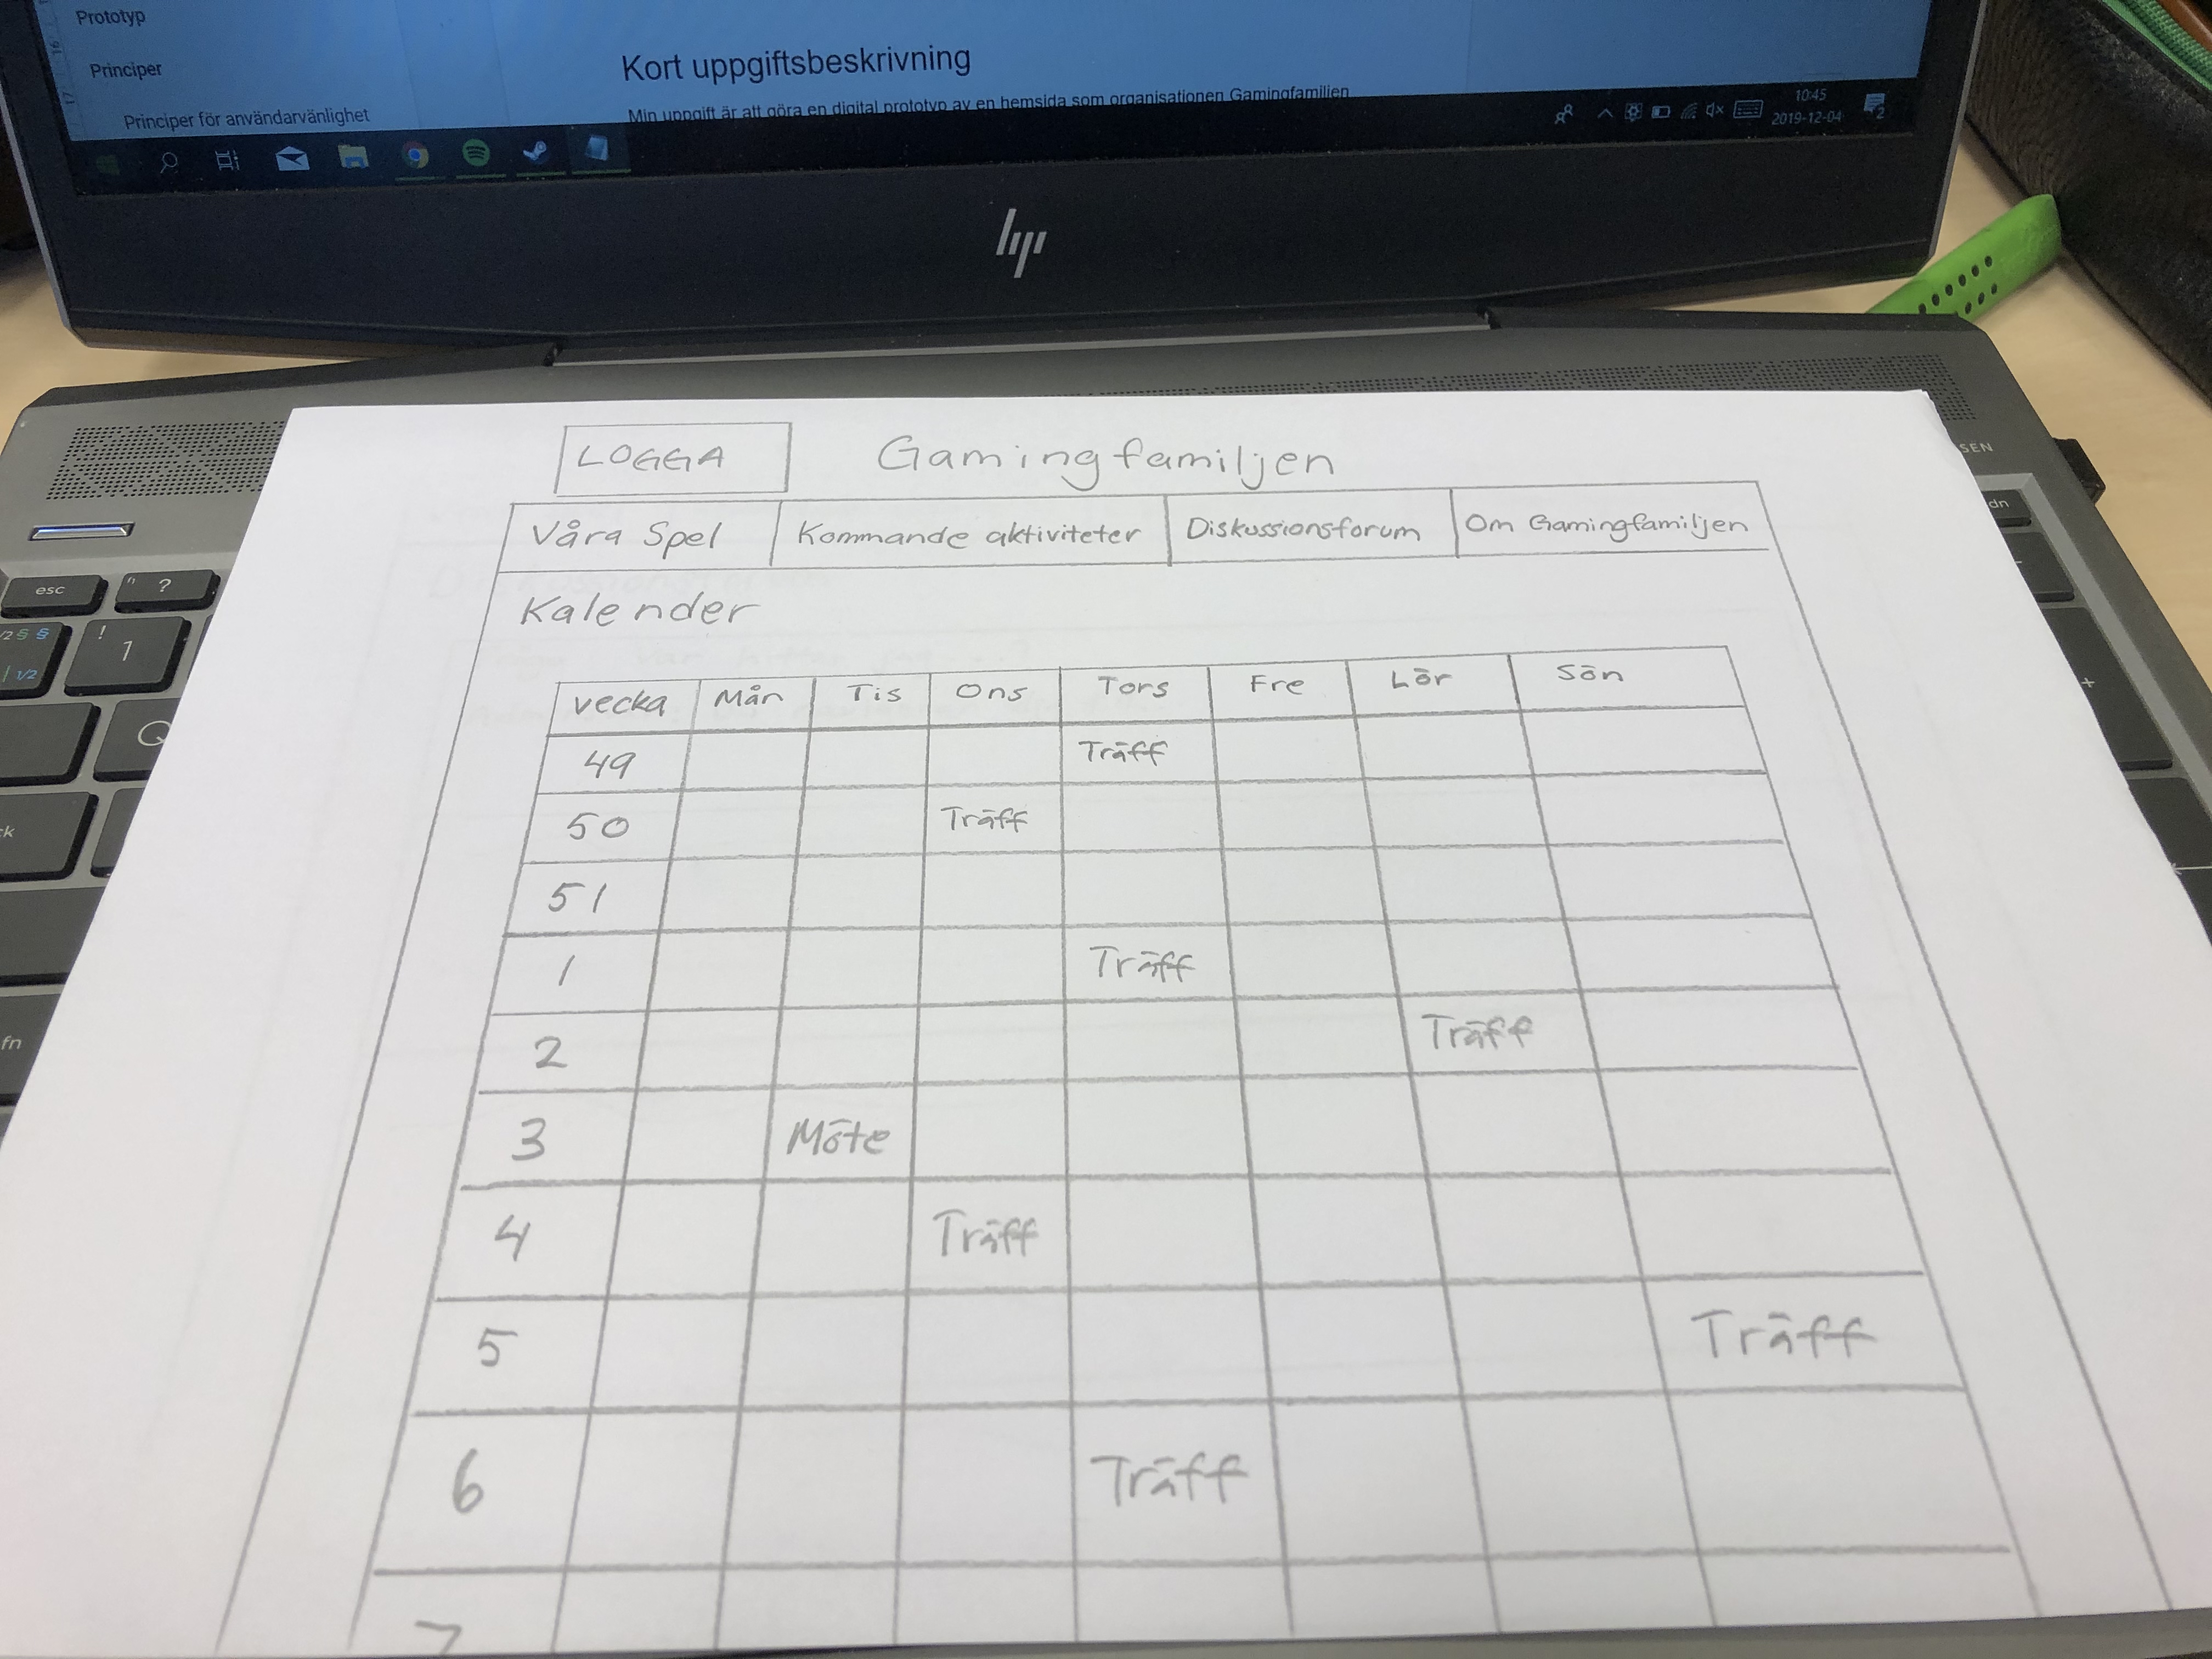 Prototyp
Principer
Principer för användarvänlighet
Kort uppgiftsbeskrivning
Min uppgift är att göra en digital prototyp av en hemsida som organisationen Gamingfamiljen
10:45
2019-12-04
2
hp
LOGGA Gamingfamiljen
Våra Spel Kommande aktiviteter Diskussionsforum Om Gamingfamiljen
Kalender
vecka Mån Tis Ons Tors Fre Lör Sön
49 Träff
50 Träff
51
1 Träff
2 Träff
3 Möte
4 Träff
5 Träff
6 Träff
7
esc
" ?
1/2 § §
| 1/2
! 1
Q
fn
SEN
dn
+